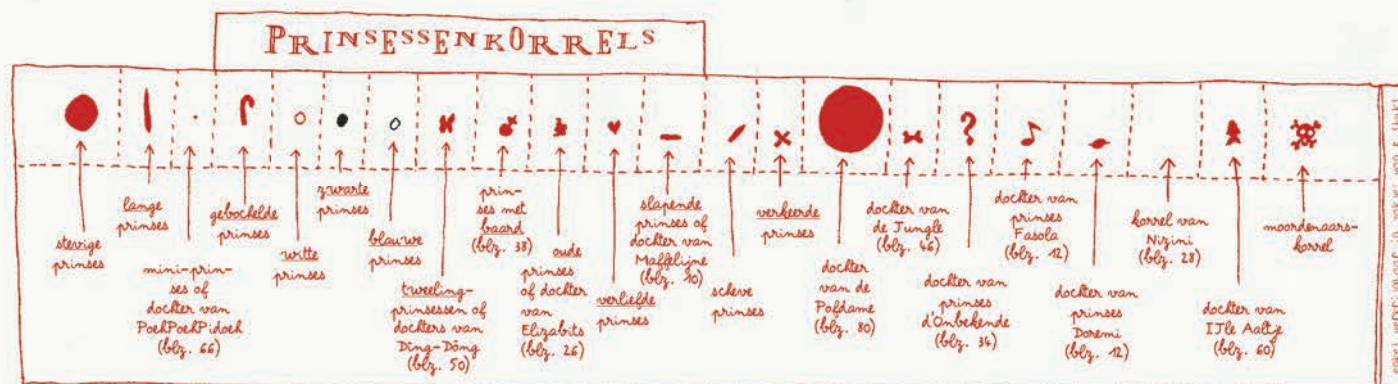 PRINSESSENKORRELS
stevige
prinses
lange
prinses
mini-prin-
ses of
dochter van
PoehPoehPidoeh
(blz. 66)
gebochelde
prinses
witte
prinses
zwarte
prinses
blauwe
prinses
tweeling-
prinsessen of
dochters van
Ding-Dông
(blz. 50)
prin-
ses met
baard
(blz. 38)
oude
prinses
of dochter
van
Elizabits
(blz. 26)
verliefde
prinses
slapende
prinses of
dochter van
Maffelijne
(blz. 10)
scheve
prinses
verkeerde
prinses
dochter
van de
Pofdame
(blz. 80)
dochter van
de Jungle
(blz. 46)
dochter van
prinses
d'Onbekende
(blz. 34)
dochter van
prinses
Fasola
(blz. 12)
dochter van
prinses
Doremi
(blz. 12)
korrel van
Nizini
(blz. 28)
dochter van
IJle Aaltje
(blz. 60)
moordenaars-
korrel